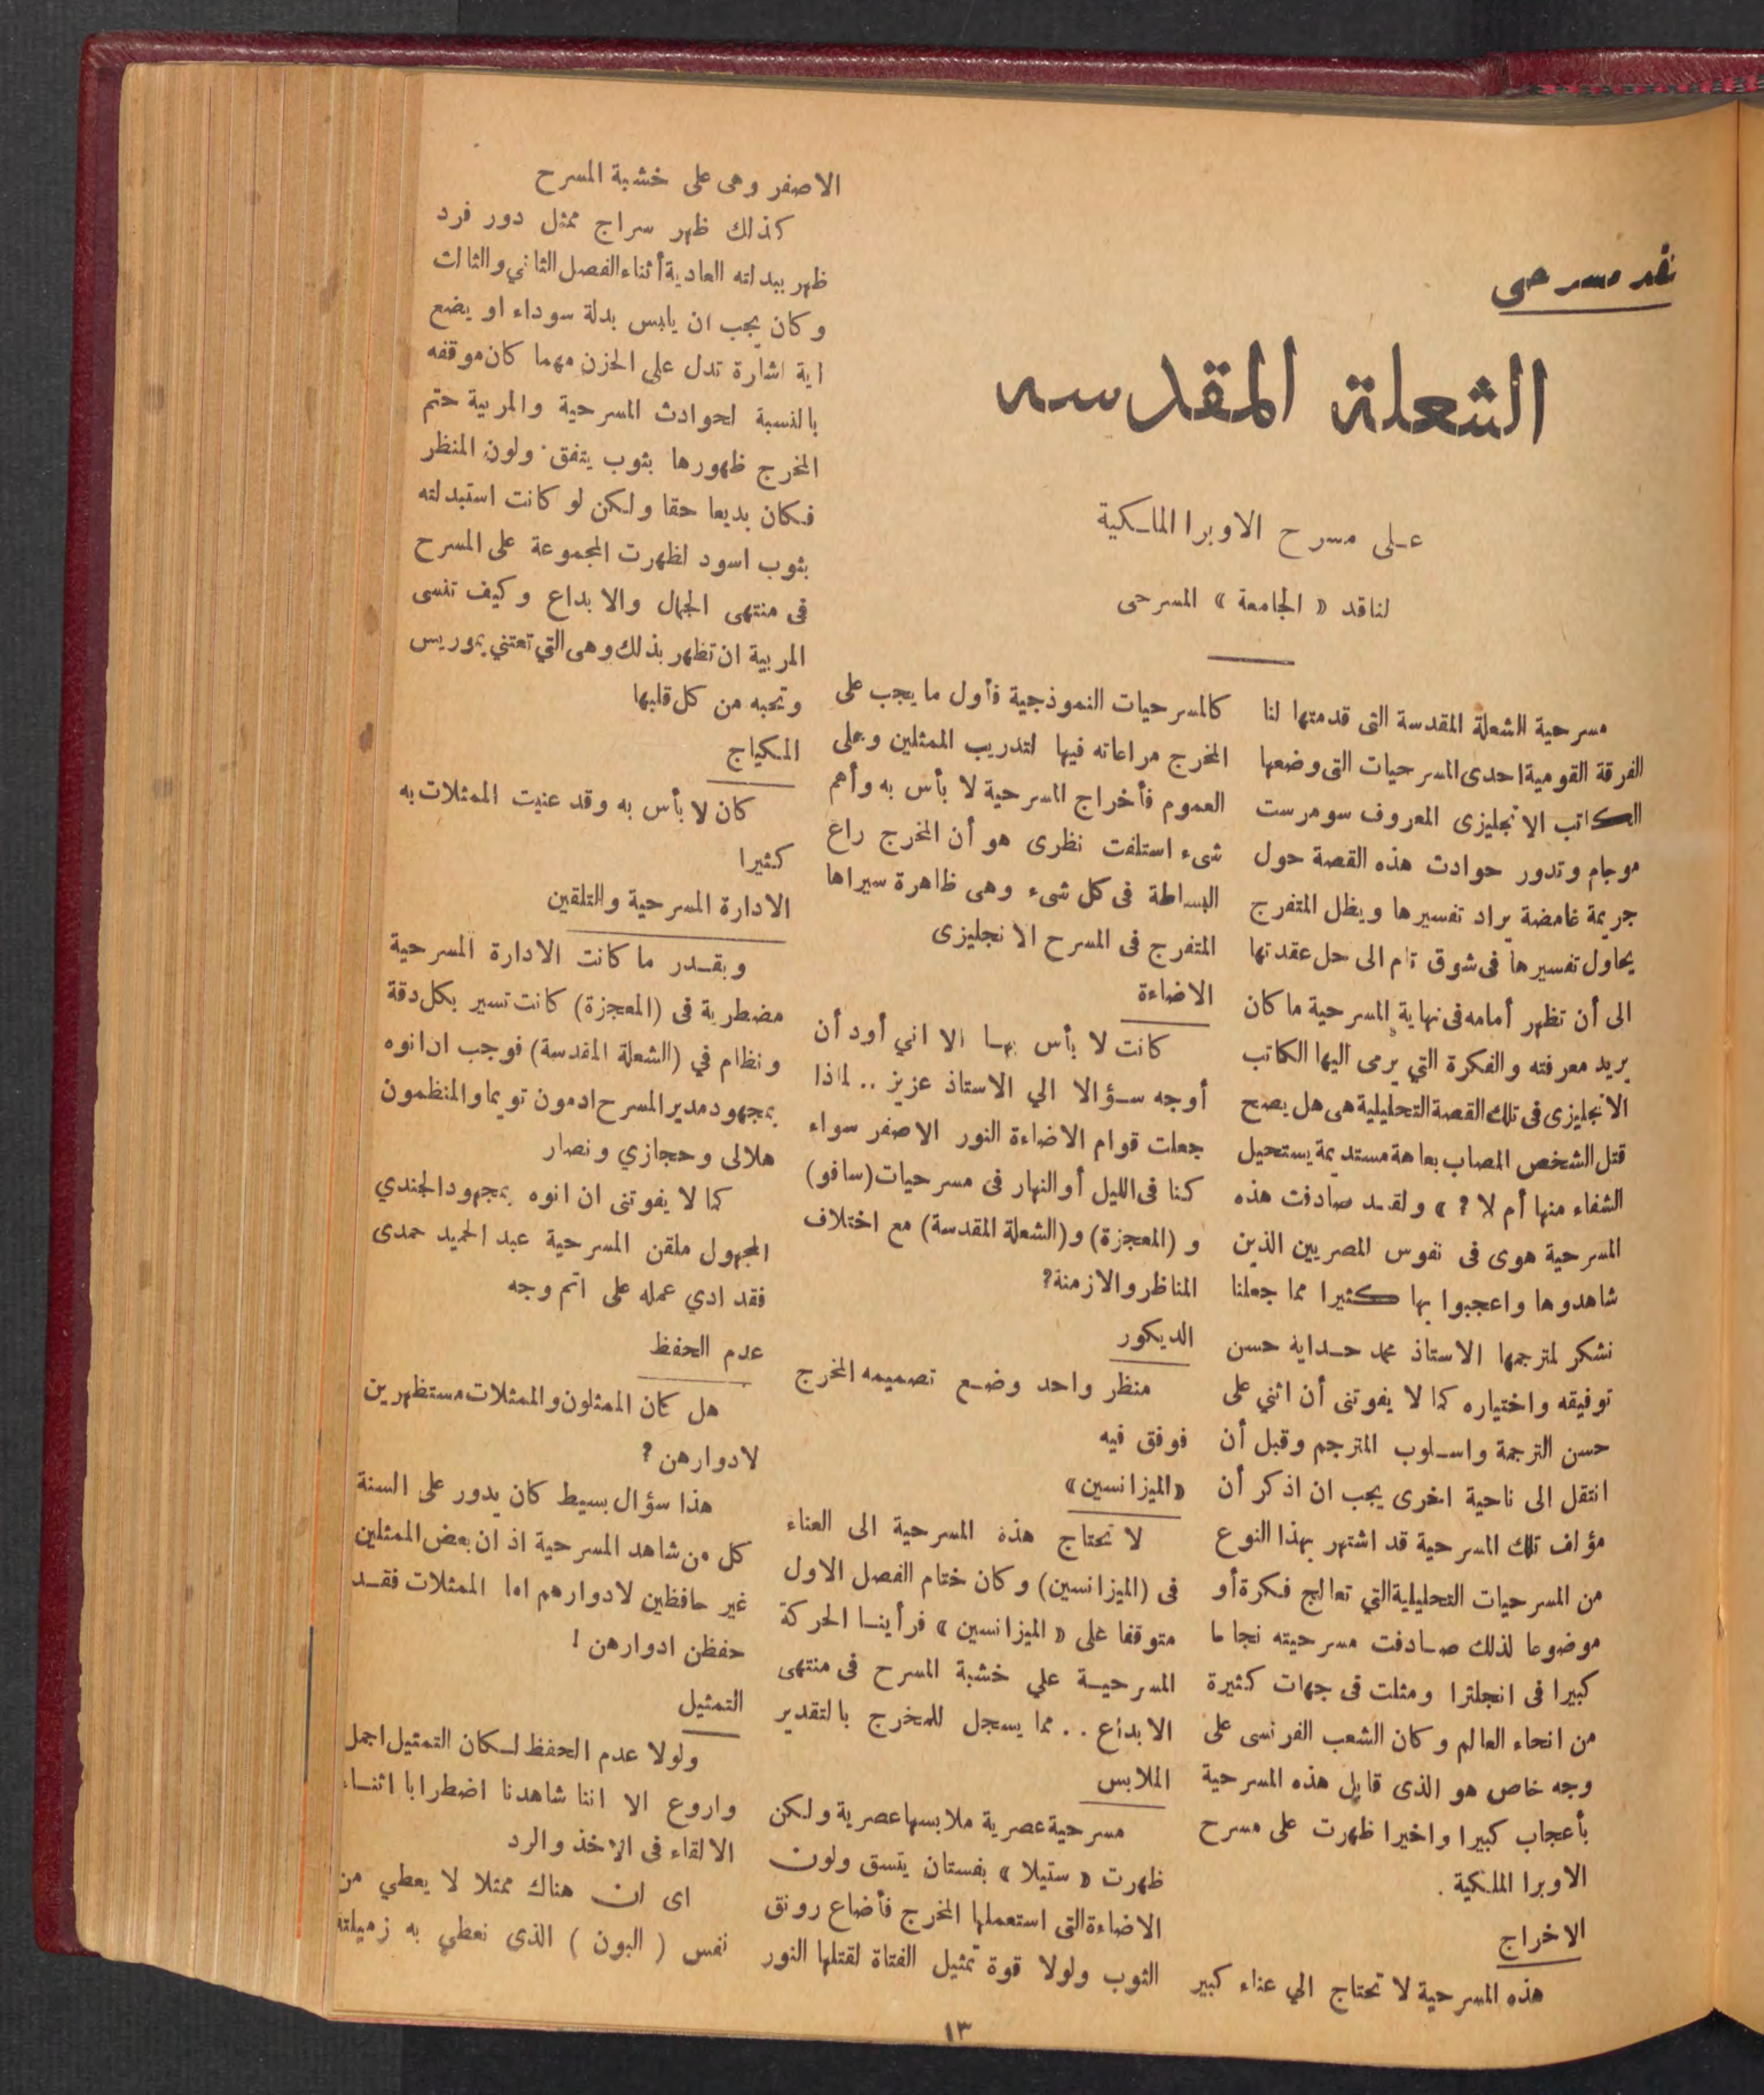 نقد مسرحى
الشعلة المقدسه
على مسرح الاوبرا الملكية
لناقد « الجامعة » المسرحى
مسرحية الشعلة المقدسة التى قدمتها لنا
الفرقة القومية احدى المسرحيات التى وضعها
الكاتب الانجليزى المعروف سومرست
موجام وتدور حوادث هذه القصة حول
جريمة غامضة يراد تفسيرها ويظل المتفرج
يحاول تفسيرها فى شوق تام الى حل عقدتها
الى أن تظهر أمامه فى نهاية المسرحية ما كان
يريد معرفته والفكرة التي يرمى اليها الكاتب
الانجليزى فى تلك القصة التحليلية هى هل يصح
قتل الشخص المصاب بعاهة مستديمة يستحيل
الشفاء منها أم لا ? » ولقد صادفت هذه
المسرحية هوى فى نفوس المصريين الذين
شاهدوها واعجبوا بها كثيرا مما جعلنا
نشكر لمترجمها الاستاذ محمد حداية حسن
توفيقه واختياره كما لا يفوتنى أن اثني على
حسن الترجمة واسلوب المترجم وقبل أن
انتقل الى ناحية اخرى يجب ان اذكر أن
مؤلف تلك المسرحية قد اشتهر بهذا النوع
من المسرحيات التحليلية التي تعالج فكرة أو
موضوعا لذلك صادفت مسرحيته نجاحا
كبيرا فى انجلترا ومثلت فى جهات كثيرة
من انحاء العالم وكان الشعب الفرنسى على
وجه خاص هو الذى قابل هذه المسرحية
بأعجاب كبيرا واخيرا ظهرت على مسرح
الاوبرا الملكية .
الاخراج
هذه المسرحية لا تحتاج الي عناء كبير
كالمسرحيات النموذجية فأول ما يجب على
المخرج مراعاته فيها لتدريب الممثلين وعلى
العموم فأخراج المسرحية لا بأس به وأهم
شىء استلفت نظرى هو أن المخرج راع
البساطة فى كل شىء وهى ظاهرة سيراها
المتفرج فى المسرح الانجليزى
الاضاءة
كانت لا بأس بها الا اني أود أن
أوجه سؤالا الي الاستاذ عزيز .. لماذا
جعلت قوام الاضاءة النور الاصفر سواء
كنا فى الليل أو النهار فى مسرحيات (سافو)
و (المعجزة) و (الشعلة المقدسة) مع اختلاف
المناظر والازمنة?
الديكور
منظر واحد وضع تصميمه المخرج
فوفق فيه
«الميزانسين»
لا تحتاج هذه المسرحية الى العناء
فى (الميزانسين) وكان ختام الفصل الاول
متوقفا على « الميزانسين » فرأينا الحركة
المسرحية علي خشبة المسرح فى منتهى
الابداع .. مما يسجل للمخرج بالتقدير
الملابس
مسرحية عصرية ملابسها عصرية ولكن
ظهرت « ستيلا » بفستان يتسق ولون
الاضاءة التى استعملها المخرج فأضاع رونق
الثوب ولولا قوة تمثيل الفتاة لقتلها النور
الاصفر وهى على خشبة المسرح
كذلك ظهر سراج ممثل دور فرد
ظهر ببدلته العادية أثناء الفصل الثاني والثالث
وكان يجب ان يلبس بدلة سوداء او يضع
اية اشارة تدل على الحزن مهما كان موقفه
بالنسبة لحوادث المسرحية والمربية حتم
المخرج ظهورها بثوب يتفق ولون المنظر
فكان بديعا حقا ولكن لو كانت استبدلته
بثوب اسود لظهرت المجموعة على المسرح
فى منتهى الجمال والابداع وكيف تنسى
المربية ان تظهر بذلك وهى التي تعتني بموريس
وتحبه من كل قلبها
المكياج
كان لا بأس به وقد عنيت الممثلات به
كثيرا
الادارة المسرحية والتلقين
وبقدر ما كانت الادارة المسرحية
مضطربة فى (المعجزة) كانت تسير بكل دقة
ونظام في (الشعلة المقدسة) فوجب ان انوه
بمجهود مدير المسرح ادمون تويما والمنظمون
هلالى وحجازي ونصار
كما لا يفوتنى ان انوه بمجهود الجندي
المجهول ملقن المسرحية عبد الحميد حمدى
فقد ادي عمله على اتم وجه
عدم الحفظ
هل كان الممثلون والممثلات مستظهرين
لادوارهن ?
هذا سؤال بسيط كان يدور على السنة
كل من شاهد المسرحية اذ ان بعض الممثلين
غير حافظين لادوارهم اما الممثلات فقد
حفظن ادوارهن !
التمثيل
ولولا عدم الحفظ لكان التمثيل اجمل
واروع الا اننا شاهدنا اضطرابا اثناء
الالقاء فى الاخذ والرد
اى ان هناك ممثلا لا يعطي من
نفس ( البون ) الذى تعطي به زميلته
١٣